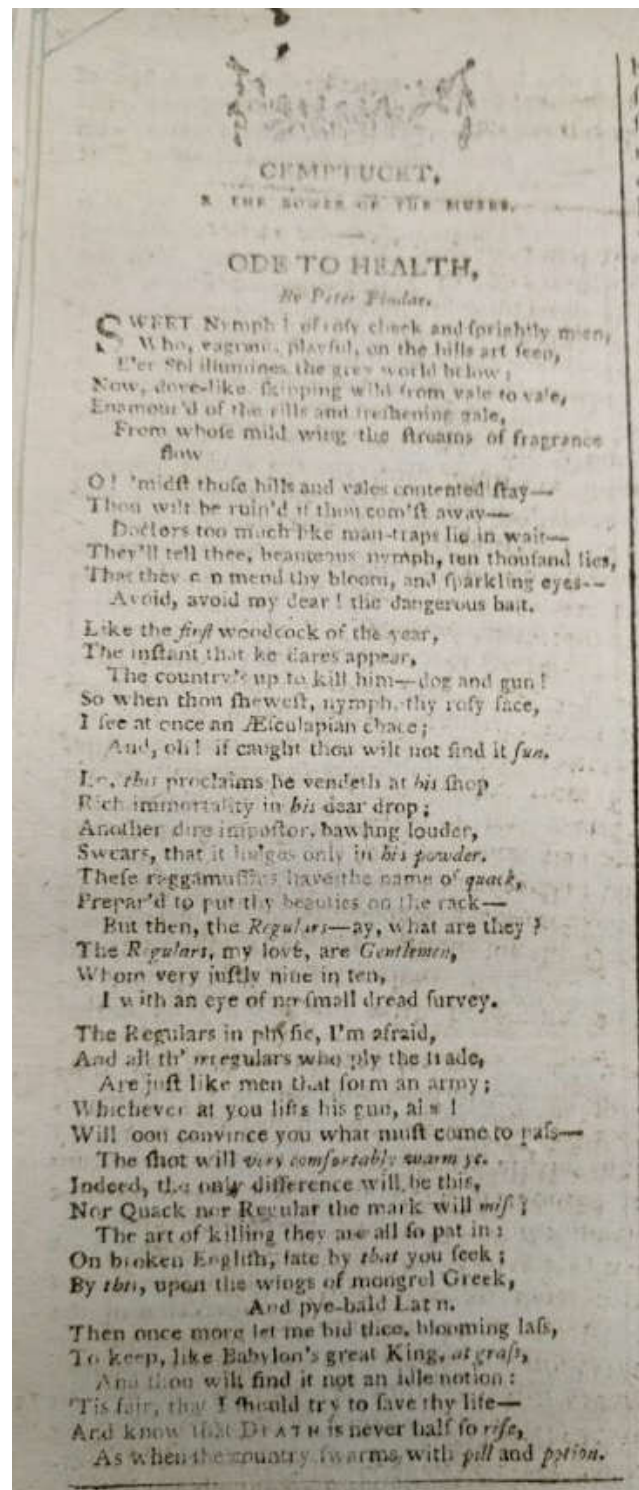 CEMPTUCET,
THE BOWER OF THE MUSES.
ODE TO HEALTH,
By Peter Pindar.
SWEET Nymph! of roſy cheek and ſprightly mien,
Who, vagrant, playful, on the hills art ſeen,
E'er Sol illumines the grey world below;
Now, dove-like, ſkipping wild from vale to vale,
Enamour'd of the rills and freſhening gale,
From whoſe mild wing the ſtreams of fragrance
flow
O! 'midſt thoſe hills and vales contented ſtay—
Thou wilt be ruin'd if thou com'ſt away—
Doctors too much like man-traps lie in wait—
They'll tell thee, beauteous nymph, ten thouſand lies,
That they c n mend thy bloom, and ſparkling eyes--
Avoid, avoid my dear! the dangerous bait.
Like the firſt woodcock of the year,
The inſtant that he dares appear,
The country's up to kill him—dog and gun!
So when thou ſheweſt, nymph, thy roſy face,
I ſee at once an Æſculapian chace;
And, oh! if caught thou wilt not find it fun.
Lo, this proclaims he vendeth at his ſhop
Rich immortality in his dear drop;
Another dire impoſtor, bawling louder,
Swears, that it lodges only in his powder.
Theſe raggamuffins have the name of quack,
Prepar'd to put thy beauties on the rack—
But then, the Regulars—ay, what are they?
The Regulars, my love, are Gentlemen,
Whom very juſtly nine in ten,
I with an eye of no ſmall dread ſurvey.
The Regulars in phyſic, I'm afraid,
And all th' irregulars who ply the trade,
Are juſt like men that form an army;
Whichever at you lifts his gun, al s!
Will oon convince you what muſt come to paſs—
The ſhot will very comfortably warm ye.
Indeed, the only difference will be this,
Nor Quack nor Regular the mark will miſ ;
The art of killing they are all ſo pat in:
On broken Engliſh, fate by that you ſeek;
By this, upon the wings of mongrel Greek,
And pye-bald Lat n.
Then once more let me bid thee, blooming laſs,
To keep, like Babylon's great King, at graſs,
And thou wilt find it not an idle notion:
'Tis fair, that I ſhould try to ſave thy life—
And know that DEATH is never half ſo rife,
As when the country ſwarms with pill and potion.